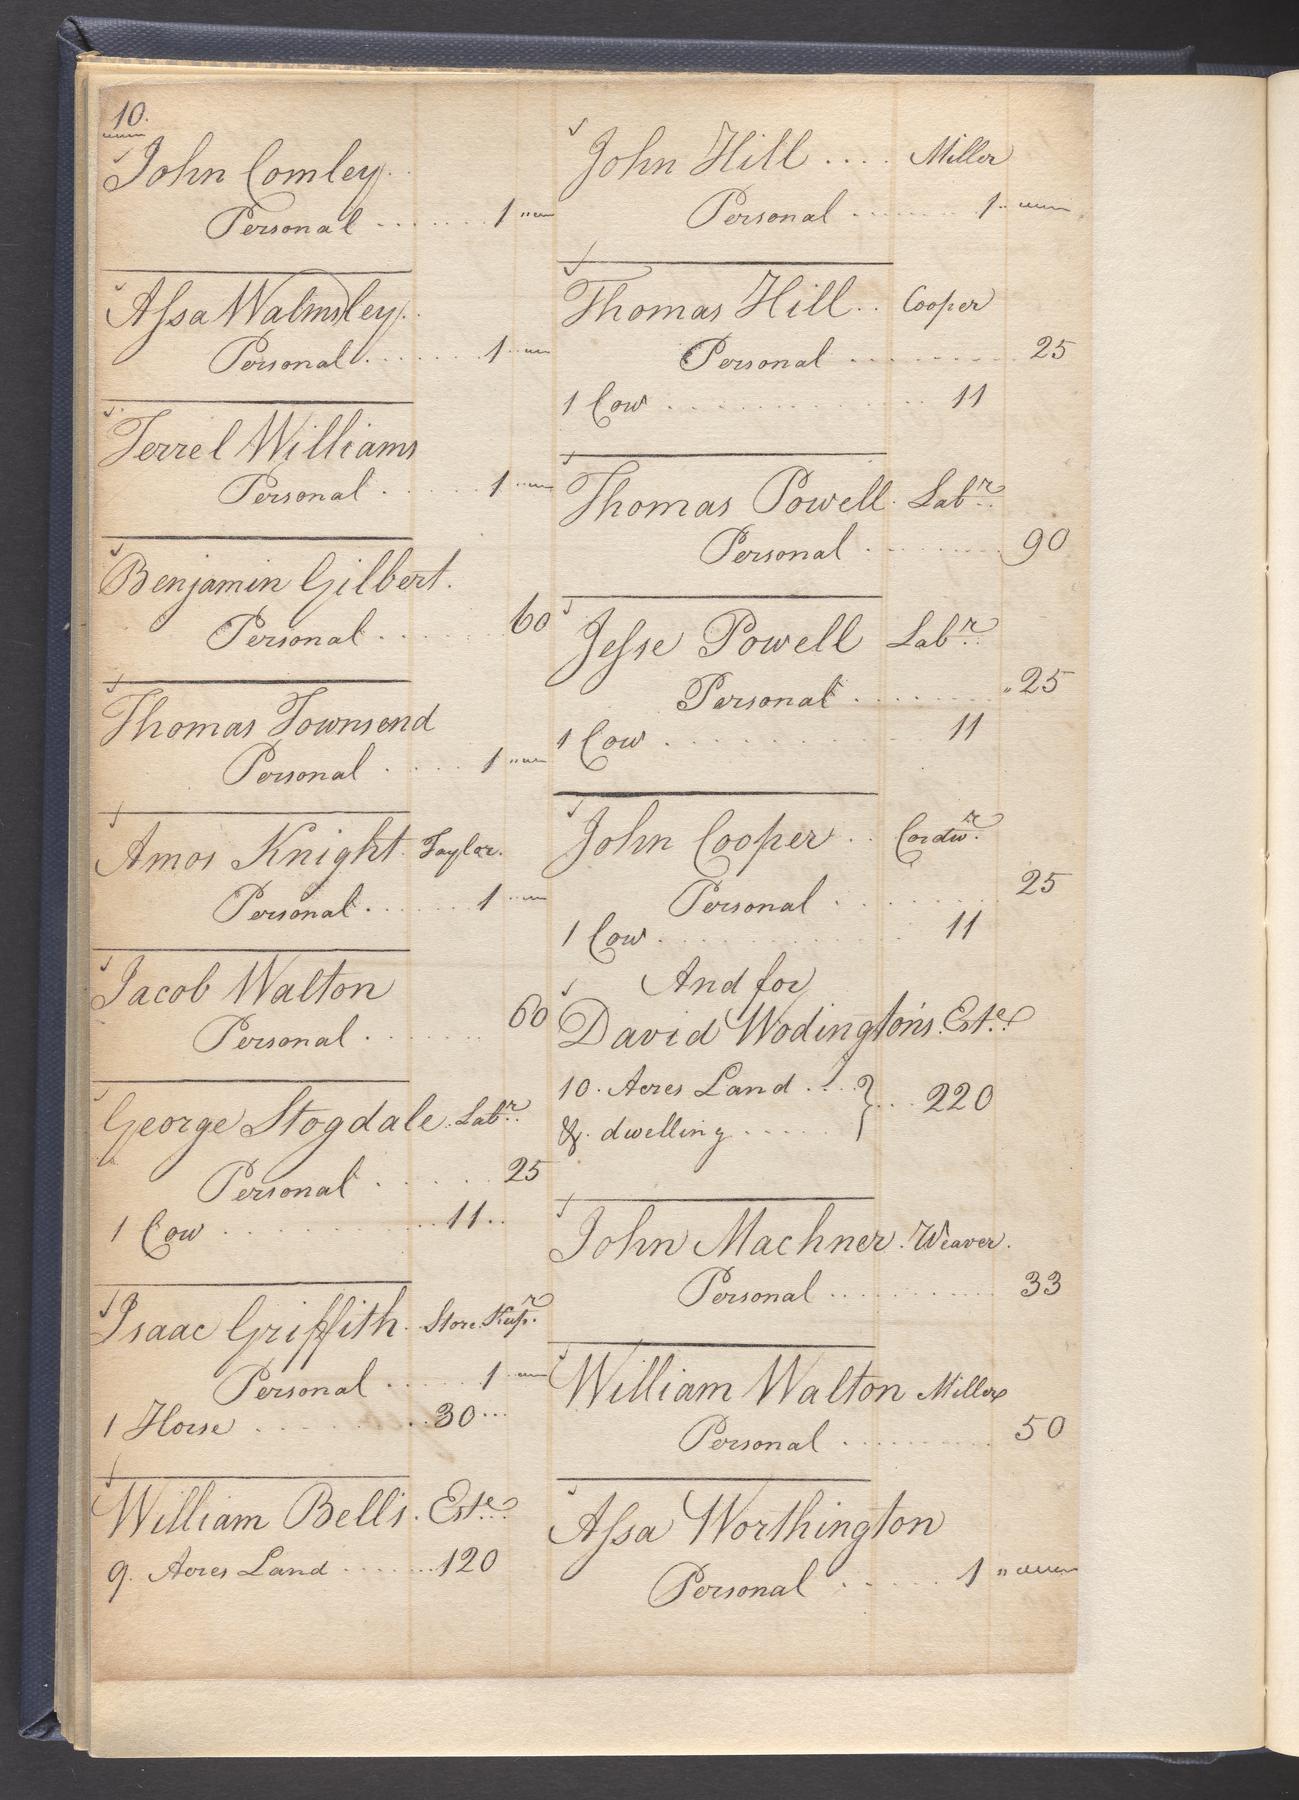 10.
John Comley.
Personal ........ 1 ""
Assa Walmsley.
Personal ........ 1 ""
Terrel Williams
Personal ........ 1 ""
Benjamin Gilbert.
Personal ........ 60
Thomas Townsend
Personal ........ 1 ""
Amos Knight. Taylor.
Personal ........ 1 ""
Jacob Walton
Personal ........ 60
George Stogdale. Labr.
Personal ........ 25
1 Cow ........ 11..
Isaac Griffith. Store Keepr.
Personal ........ 1 ""
1 Horse ........ 30...
William Bell's. Este.
9. Acres Land ........ 120
John Hill .... Miller
Personal ........ 1 ""
Thomas Hill .. Cooper
Personal ........ 25
1 Cow ........ 11
Thomas Powell. Labr.
Personal ........ 90
Jesse Powell Labr.
Personal ........ "25
1 Cow ........ 11
John Cooper .. Cordwr.
Personal ........ 25
1 Cow ........ 11
And for
David Wodington's. Este.
10. Acres Land .... } ... 220
&. dwelling .....
John Machner. Weaver.
Personal ........ 33
William Walton Miller
Personal ........ 50
Assa Worthington
Personal ........ 1 ""